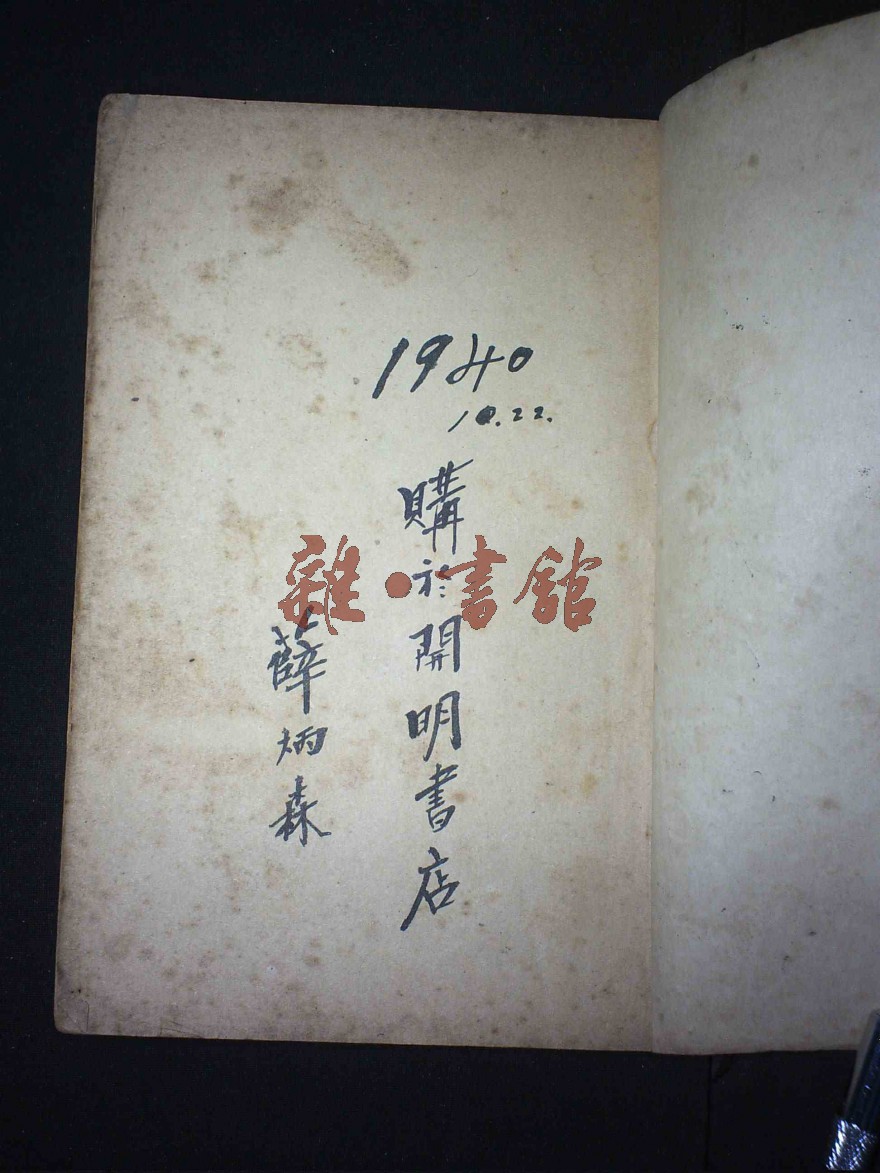 1940
10.22.
購於開明書店
薛炳森
雜·書館